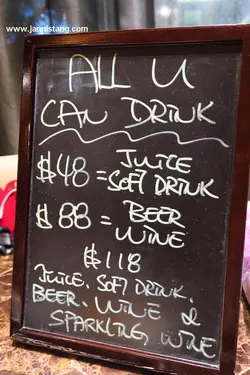 www.jannistang.com
ALL U
CAN DRINK
$48 = JUICE
SOFT DRINK
$88 = BEER
WINE
$118
JUICE. SOFT DRINK.
BEER. WINE &
SPARKLING WINE